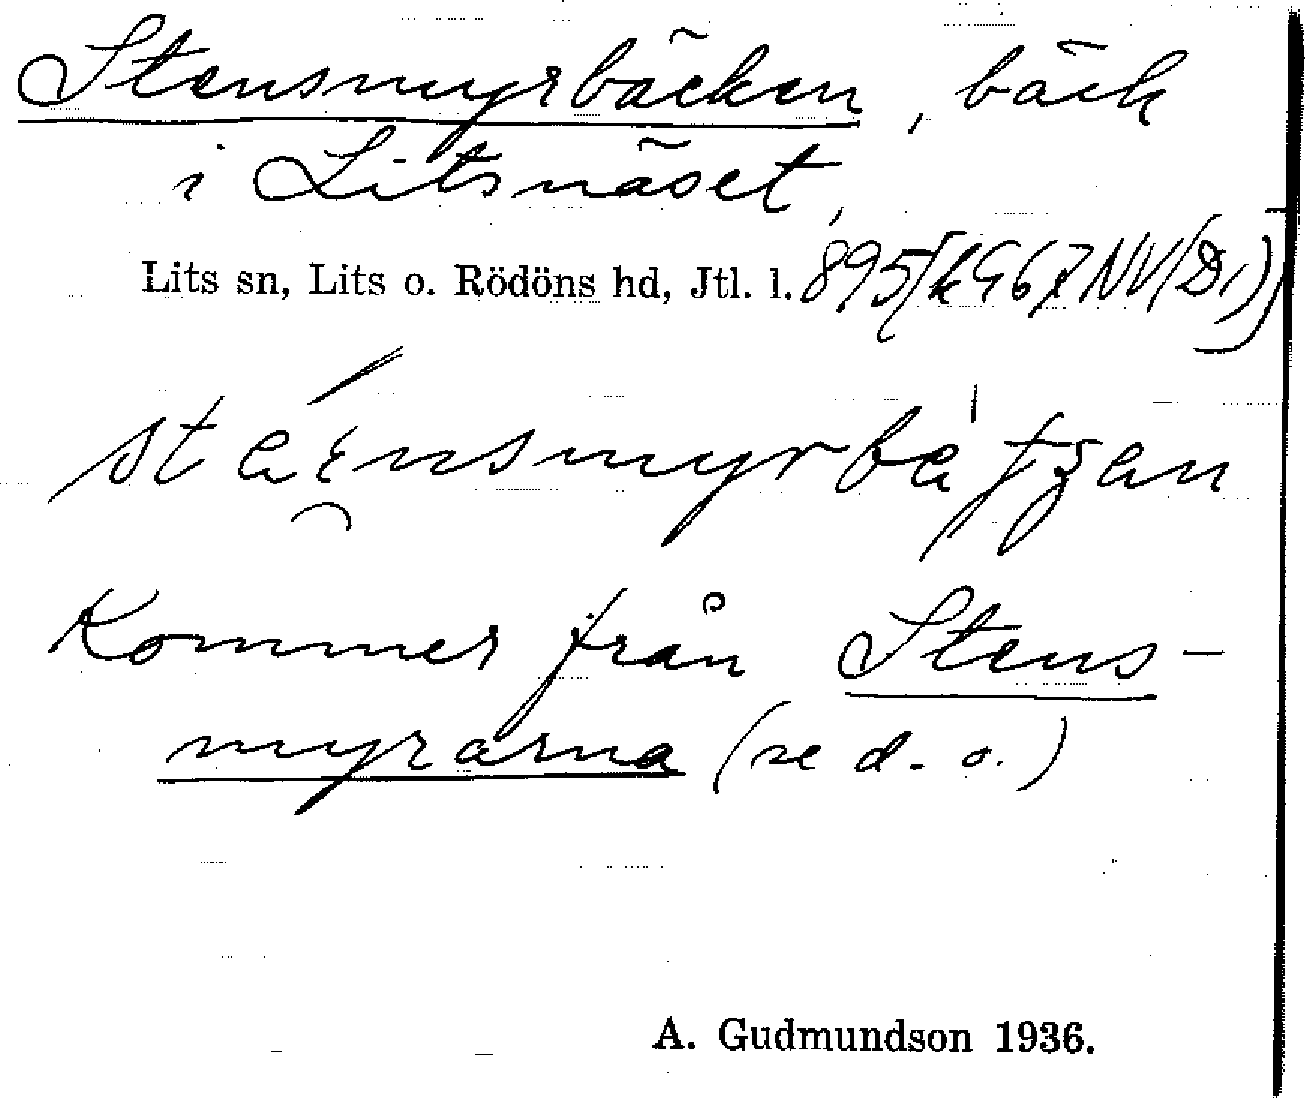 Stensmyrbäcken, bäck
i Litsnäset,
Lits sn, Lits o. Rödöns hd, Jtl. l.
Kommer från Stens-
myrarna (se d. o.)
A. Gudmundson 1936.